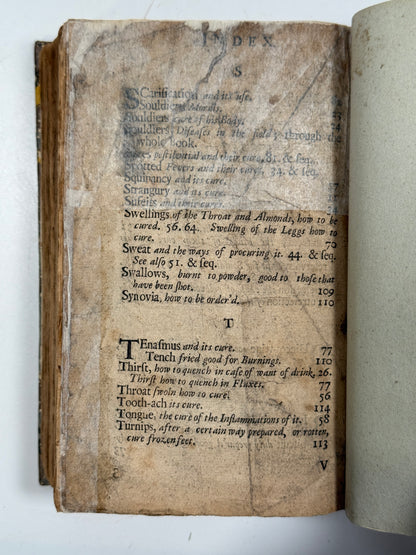 INDEX.
S
SCarification and its use.
Souldiers Morals.
Souldiers cure of his Body.
Souldiers, Diseases in the field, through the
whole book.
pestilential and their cure, 81. & seq.
Spotted Fevers and their cure, 34. & seq.
Squinancy and its cure.
Strangury and its cure.
Surfeits and their cure.
Swellings of the Throat and Almonds, how to be
cured. 56. 64. Swelling of the Leggs how to
cure. 70
Sweat and the ways of procuring it. 44. & seq.
See also 51. & seq.
Swallows, burnt to powder, good to those that
have been shot. 109
Synovia, how to be order'd. 110
T
TEnasmus and its cure. 77
Tench fried good for Burnings. 110
Thirst, how to quench in case of want of drink, 26.
Thirst how to quench in Fluxes. 77
Throat swoln how to cure. 56
Tooth-ach its cure. 114
Tongue, the cure of the Inflammations of it. 58
Turnips, after a certain way prepared, or rotten,
cure frozen feet. 113
V